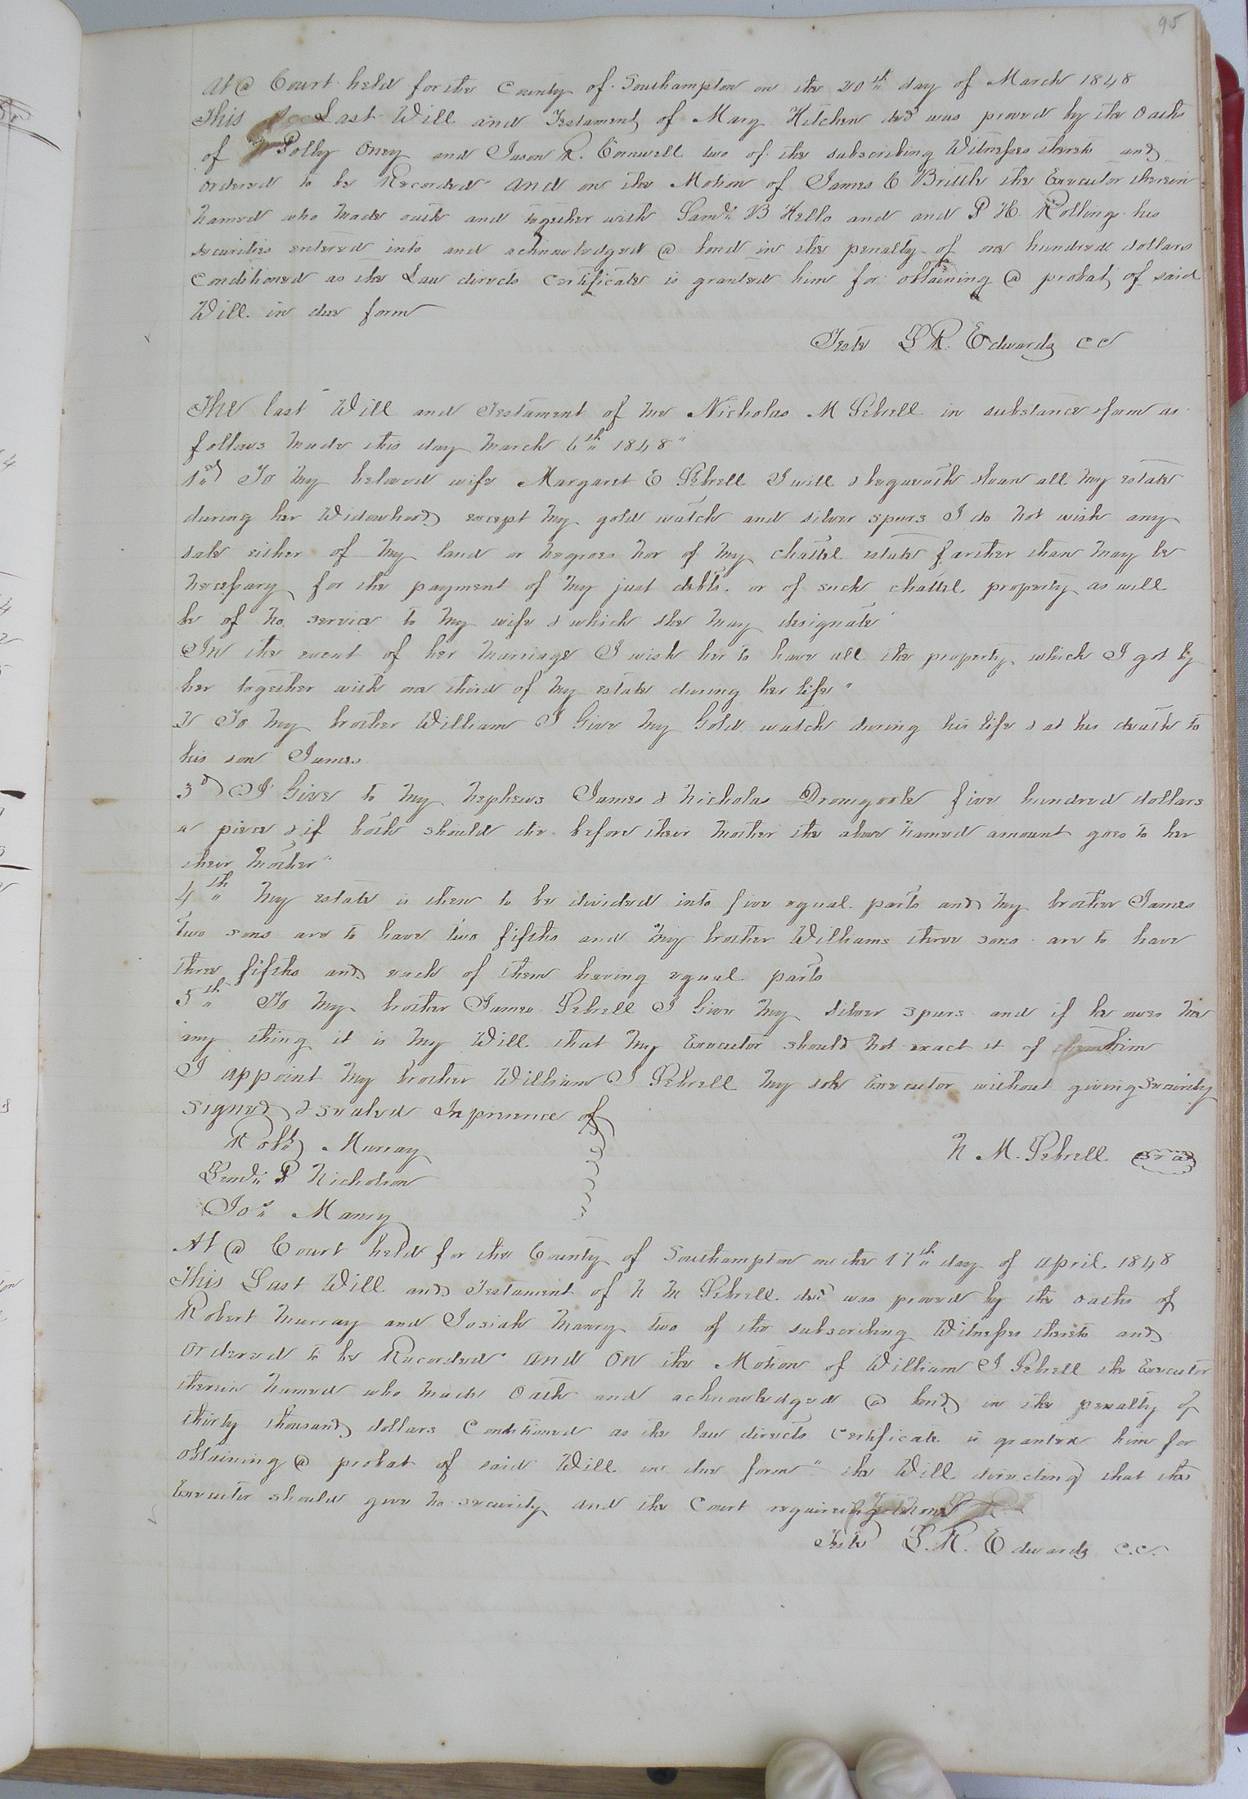 95
At @ Court held for the County of Southampton on the 20th day of March 1848
This Last Will and Testament of Mary Kitchen decd was proved by the Oaths
of Polly Oney and Jason R. Cornwell two of the subscribing Witnesses thereto and
Ordered to be Recorded And on the Motion of James E Brittle the Executor therein
named who made oath and together with Saml B Hells and and P H Rollings his
securities entered into and acknowledged @ bond in the penalty of one hundred dollars
Conditioned as the Law directs Certificate is granted him for obtaining @ probat of said
Will in due form
Teste L R. Edwards CC
The last Will and Testament of me Nicholas M Sebrell in substance & form as
follows made this day March 6th 1848"
1st To my beloved wife Margaret E Sebrell I will & bequeath & loan all my estate
during her Widowhood except my gold watch and silver spurs I do not wish any
sale either of my land or negroes nor of my chattel estate farther than may be
necessary for the payment of my just debts. or of such chattel property as will
be of no service to my wife & which she may designate
In the event of her marriage I wish her to have all the property which I got by
her together with one third of my estate during her life"
2d To my brother William I Give my Gold watch during his life & at his death to
his son James
3d I Give to my nephews James & Nicholas Dromgoole five hundred dollars
a piece & if both should die before their mother the above named amount goes to her
their mother"
4th My estate is then to be divided into five equal parts and my brother James
two sons are to have two fifths and my brother Williams three sons are to have
three fifths and each of them having equal parts
5th To my brother James Sebrell I Give my silver spurs and if he owes me
any thing it is my Will that my Executor should not exact it of him
I appoint my brother William J Sebrell my sole Executor without giving security
signed & sealed In presence of
Robt Murray
N M. Sebrell Seal
P Nicholson
Jos Manry
At @ Court held for the County of Southampton on the 17th day of April 1848
This Last Will and Testament of N M Sebrell decd was proved by the oaths of
Robert Murray and Josiah Manry two of the subscribing Witnesses thereto and
Ordered to be Recorded And On the Motion of William J Sebrell the Executor
therein named who made Oath and acknowledged @ bond in the penalty of
thirty thousand dollars Conditioned as the law directs Certificate is granted him for
Obtaining @ probat of said Will in due form" the Will directing that the
Executor should give no security and the Court requiring none
Teste L. R. Edwards C.C.